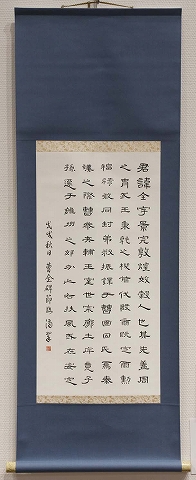 君諱全字景完敦煌效穀人也其先蓋周
之胄武王秉乾之機翦伐殷商既定爾勳
福祿攸同封弟叔振鐸于曹國因氏焉秦
漢之際曹參夾輔王室世宗廓土斥竟子
孫遷于雍州之郊分止右扶風或在安定
戊戌秋日 曹全碑節臨